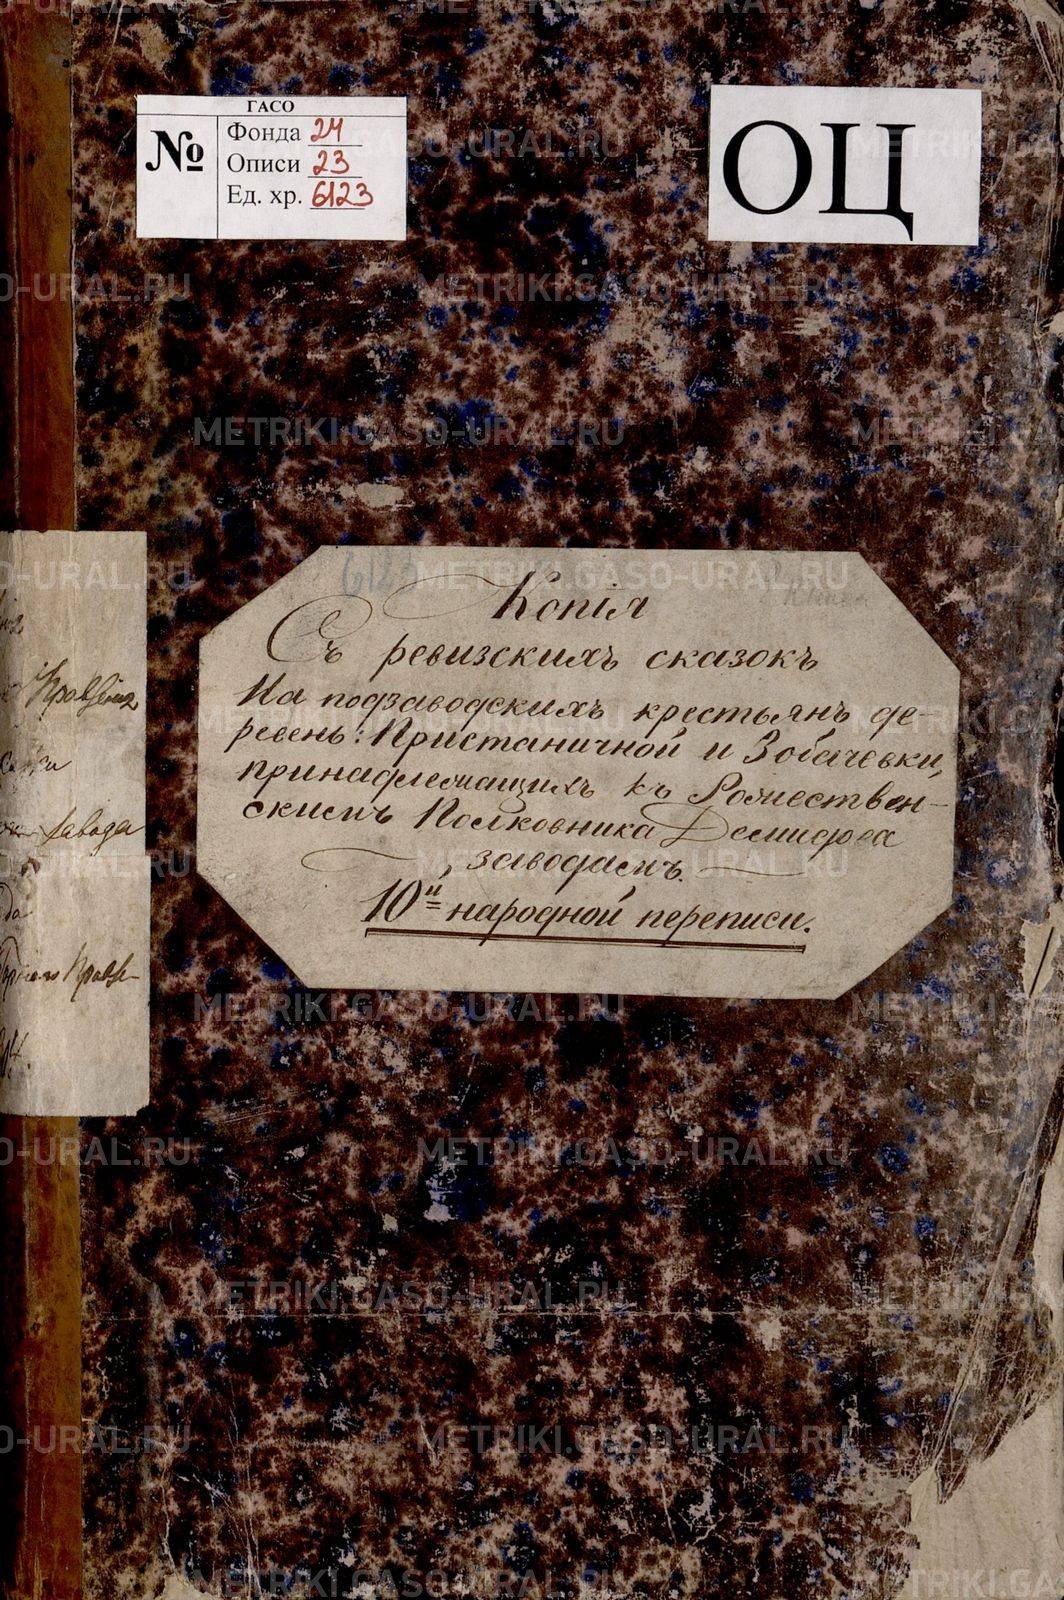 ГАСО
№
Фонда 24
Описи 23
Ед. хр. 6123
ОЦ
6123
Копія
Съ ревизскихъ сказокъ
На подзаводскихъ крестьянъ де-
ревень: Пристаничной и Зобачевки,
принадлежащихъ къ Рожествен-
скимъ Полковника Демидова
заводамъ.
10й народной переписи.
завода
METRIKI.GASO-URAL.RU